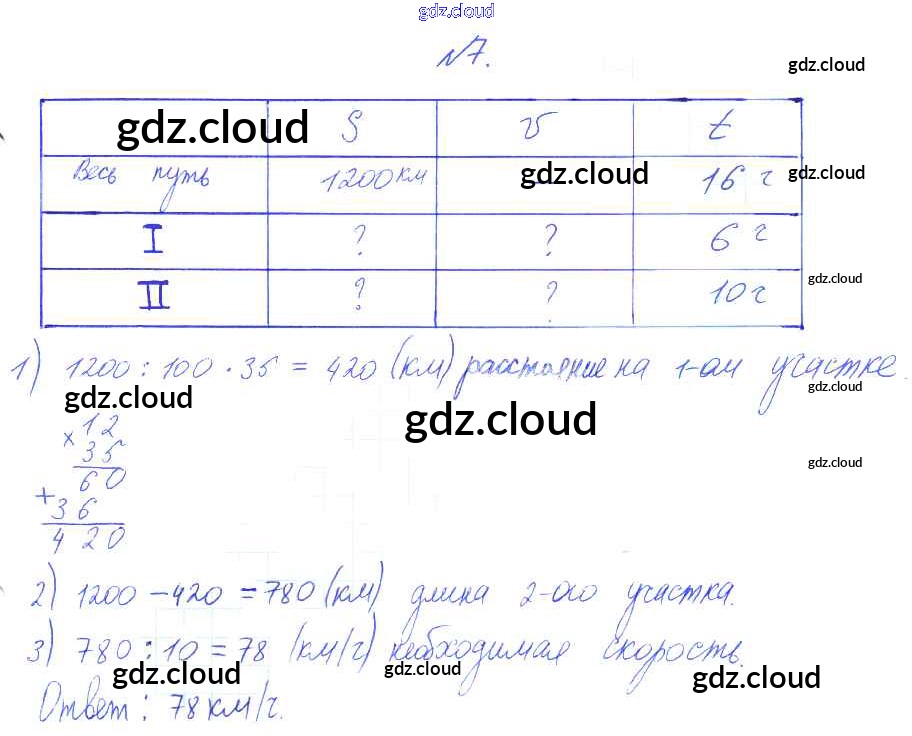 gdz.cloud
№7.
gdz.cloud
gdz.cloud S v t
Весь путь 1200 км gdz.cloud – 16 г gdz.cloud
I ? ? 6 г
gdz.cloud
II ? ? 10 г
1) 1200 : 100 · 35 = 420 (км) расстояние на 1-ом участке.
gdz.cloud gdz.cloud
gdz.cloud
× 12
35
gdz.cloud
60
+ 36
420
2) 1200 – 420 = 780 (км) длина 2-ого участка.
3) 780 : 10 = 78 (км/г) необходимая скорость.
gdz.cloud gdz.cloud gdz.cloud
Ответ: 78 км/г.